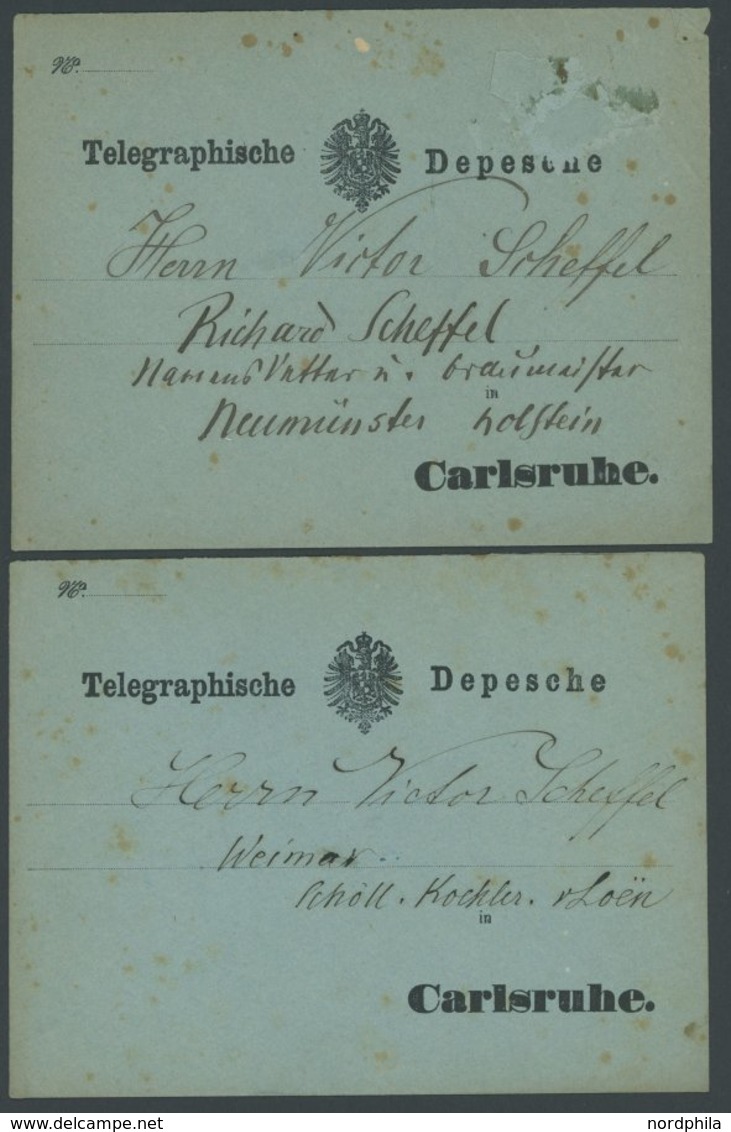 No.
Telegraphische Depesche
Herrn Victor Scheffel
Richard Scheffel
Namens Vetter u. Braumeister
in
Neumünster Holstein
Carlsruhe.
No.
Telegraphische Depesche
Herrn Victor Scheffel
Weimar..
Schöll. Kochler. vLoën
in
Carlsruhe.
nordphila